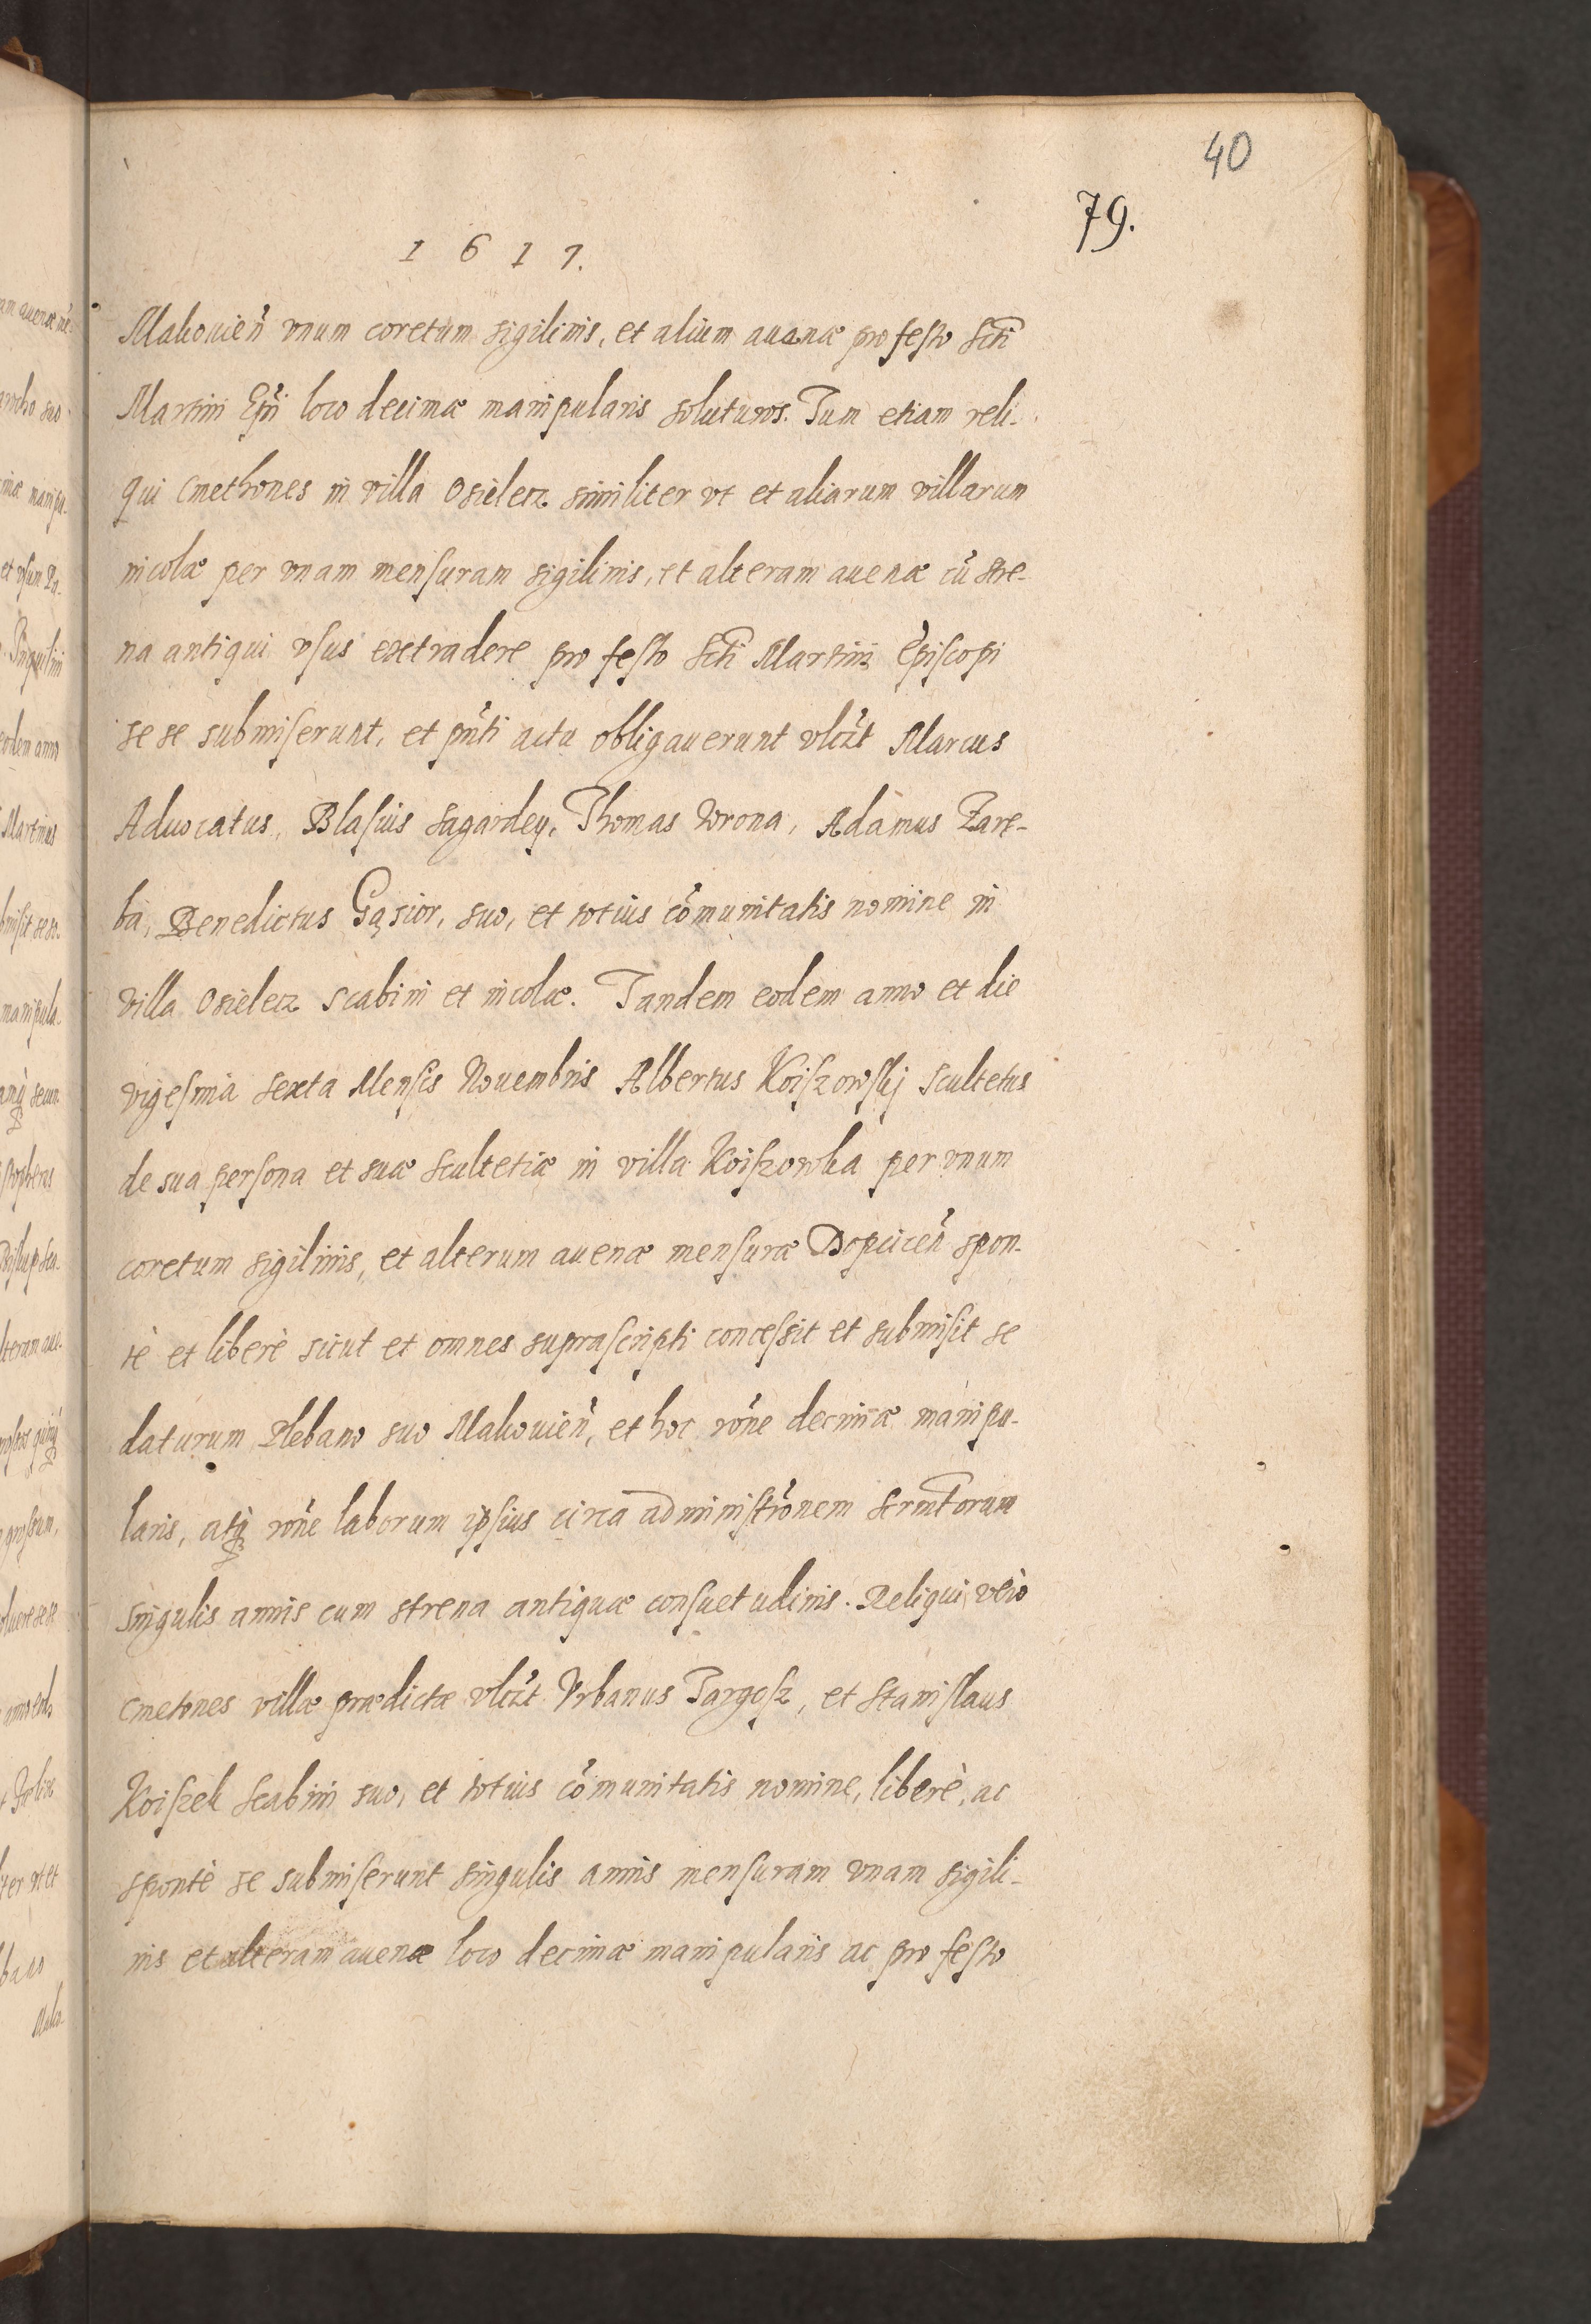 40
79.
1 6 1 7.
Makouień vnum coretum sigilinis, et alium auenæ pro festo Scti
Martini Epi loco decimæ manipularis soluturos. Tum etiam reli-
qui cmethones in villa Osielecz similiter vt et aliarum villarum
incolæ per vnam mensuram sigilinis, et alteram auenæ cũ stre-
na antiqui vsus extradere pro festo Scti Martini Episcopi
se se submiserunt, et pnti actu obligauerunt vlczt Marcus
Aduocatus, Blasius Sagardey, Thomas Wrona, Adamus Zare-
ba, Benedictus Gąsior, suo, et totius cõmunitatis nomine in
villa Osielecz scabini et incolæ. Tandem eodem anno et die
vigesima sexta Mensis Nouembris Albertus Koiszowskj Scultetus
de sua persona et suæ scultetiæ in villa Koiszowka per vnum
coretum sigilinis, et alterum auenæ mensuræ Dopcicen spon-
tè et liberè sicut et omnes suprascripti concessit et submisit se
daturum Plebano suo Makouień, et hoc rõne decimæ manipu-
laris, atq rõne laborum ipsius circa administrõnem Scrmtorum
singulis annis cum strena antiquæ consuetudinis. Reliqui vèrò
cmetones villæ prædictæ vlczt Vrbanus Targosz, et Stanislaus
Koiszek Scabini suo, et totius cõmunitatis nomine, liberè, ac
spontè se submiserunt singulis annis mensuram vnam sigili-
nis et alteram auenæ loco decimæ manipularis ac pro festo